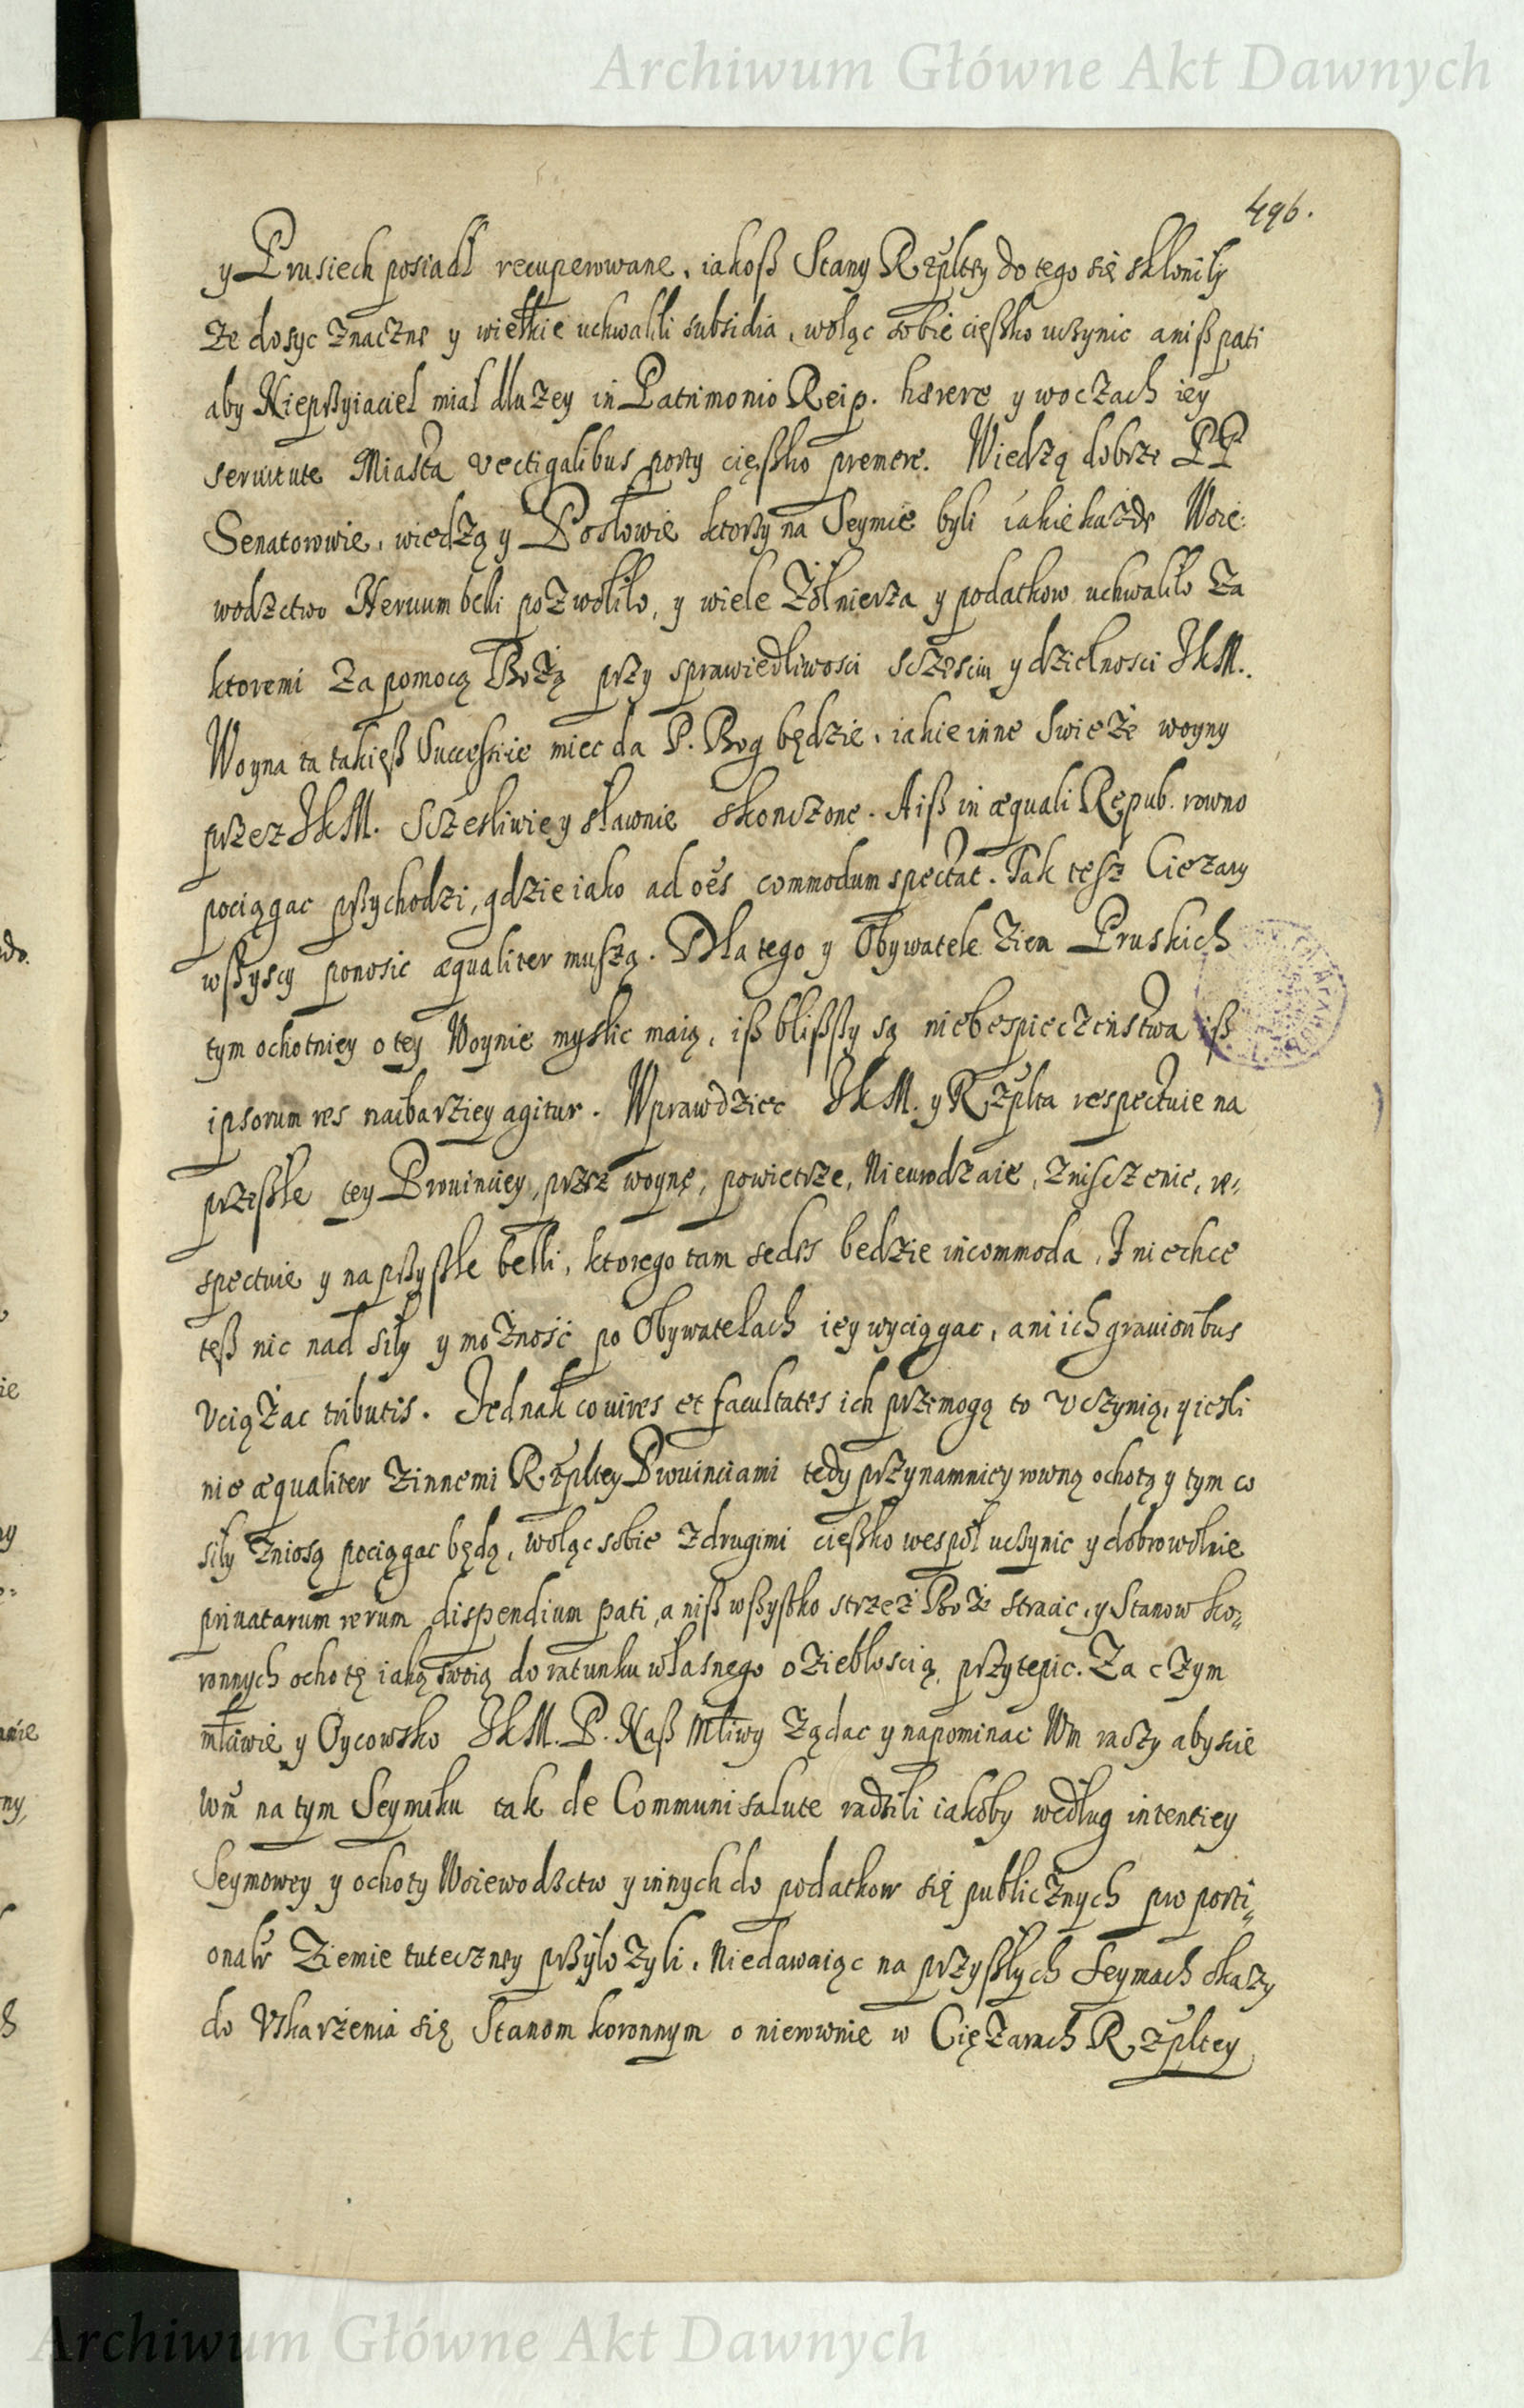 Archiwum Główne Akt Dawnych
496.
y Prusiech posiadł recuperowane, iakoß Stany Rzpltey do tego się skłoniły
że dosyc znaczne y wielkie uchwalili subsidia, woląc sobie cięßko uczynic aniß pati
aby Niepßyiaciel miał dłużey in Patrimonio Reip. hærere y woczach iey
seruitute Miasta vectigalibus porty cięßko premere. Wiedzą dobrze PP
Senatorowie, wiedzą y Posłowie ktorzy na Seymie byli iakie każde Woie:
wodztwo Neruum belli pozwoliło, y wiele Żołnierza y podatkow uchwaliło za
ktoremi za pomocą Bożą przy sprawiedliwosci sczęsciu y dzielnosci JkM.
Woyna ta takięß Successie miec da P. Bog będzie, iakie inne swieże woyny
przez JkM. Sczesliwie y sławnie skonczone. A iß in æquali Repub. rowno
pociągac pßychodzi, gdzie iako ad oēs commodum spectat. Tak tesz Ciezary
wßyscy ponosic æqualiter muszą. Dla tego y Obywatele Ziem Pruskich
tym ochotniey o tey Woynie myslic maią, iß blißßy są niebespieczenstwa iß
ipsorum res naibarziey agitur. Wprawdziec JkM. y Rzplta respectuie na
przeßłe tey Prouinciey, przez woynę, powietrze, Nieurodzaie, zniszczenie, re=
spectuie y na pßyßłe belli, ktorego tam sedes bedzie incommoda, I niechce
teß nic nad siły y możność po Obywatelach iey wyciągac, ani ich grauioribus
vciążac tributis. Jednak co vires et facultates ich przemogą to vczynią, y iesli
nie æqualiter zinnemi Rzpltey Prouinciami tedy przynamniey rowną ochotą y tym co
siły zniosą pociągac będą, woląc sobie z drugimi cięßko wespół uczynic y dobrowolnie
priuatarum rerum dispendium pati, a niß wßyßtko strzeż Boże stracic, y Stanow ko=
ronnych ochotę iaką swoią do ratunku własnego oziebłoscią przytepic. Za czym
młciwie y Oycowsko JkM. P. Naß Młciwy Żądac y napominac Wm raczy aby sie
wm̄ na tym Seymiku tak de Communi salute radzili iakoby według intentiey
Seymowey y ochoty Woiewodztw y innych do podatkow się publicznych pro porti=
onale Ziemie tuteczney pßyłożyli, Niedawaiąc na przyßłych Seymach skazy
do Vskarżenia się Stanom koronnym o nierownie w Ciężarach Rzpltey
Archiwum Główne Akt Dawnych